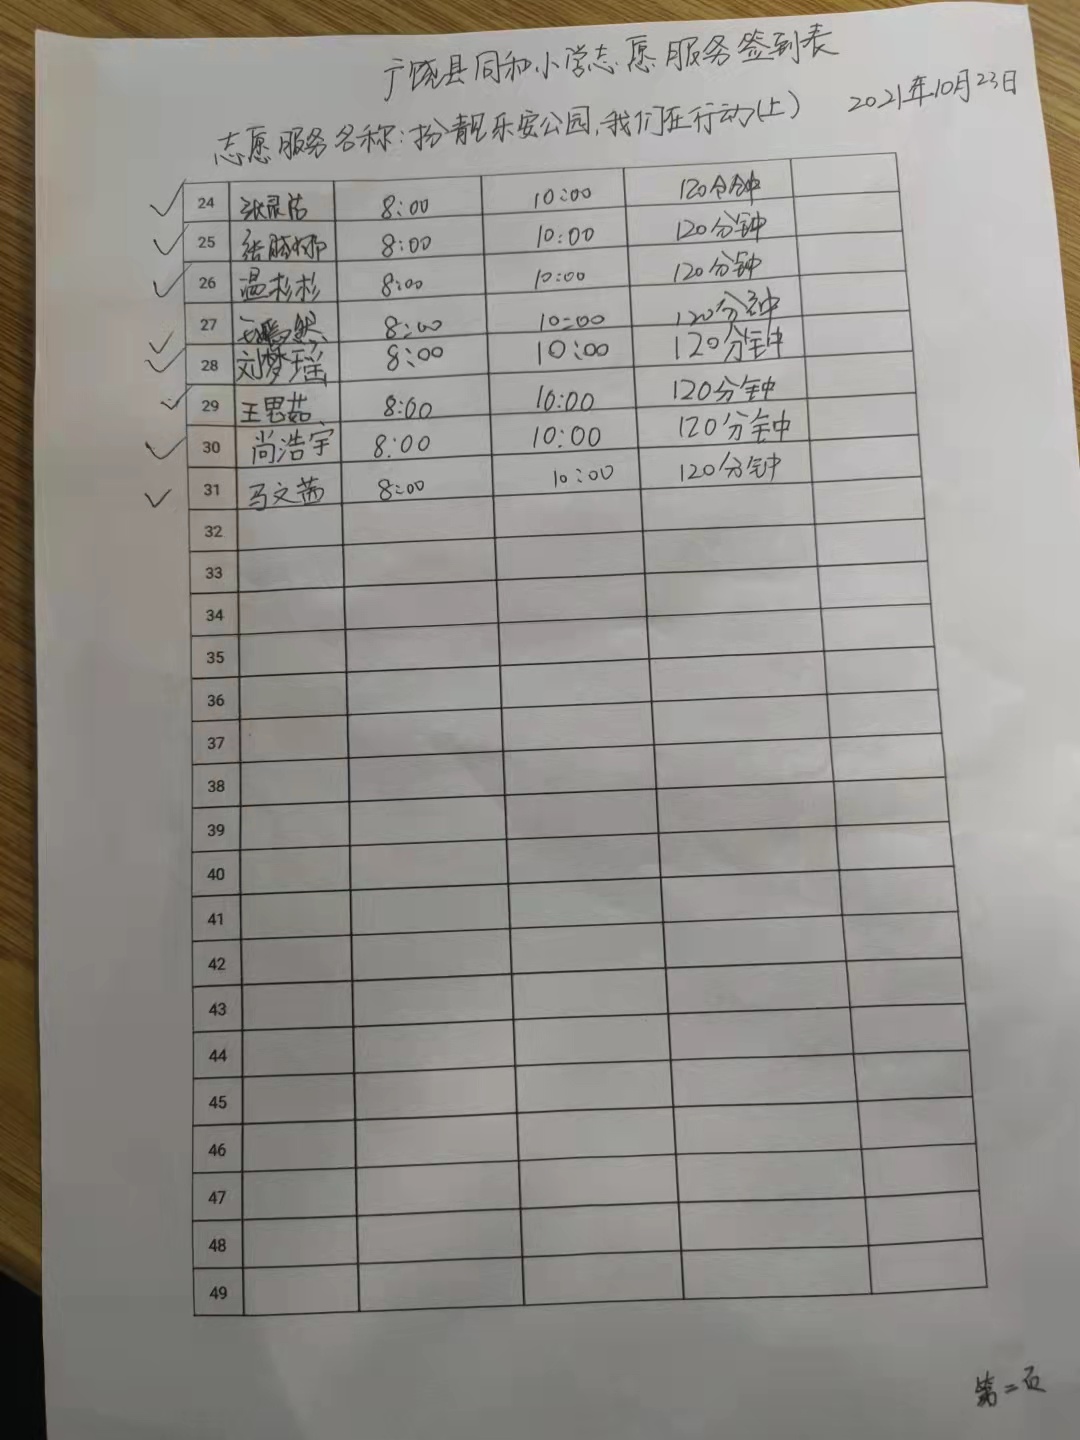 广饶县同和小学志愿服务签到表
志愿服务名称:扮靓乐安公园,我们在行动(上) 2021年10月23日
24 8:00 10:00 120分钟
25 8:00 10:00 120分钟
26 温杉杉 8:00 10:00 120分钟
27 8:00 10:00 120分钟
28 刘梦瑶 8:00 10:00 120分钟
29 王思茹 8:00 10:00 120分钟
30 尚浩宇 8:00 10:00 120分钟
31 马文茜 8:00 10:00 120分钟
32
33
34
35
36
37
38
39
40
41
42
43
44
45
46
47
48
49
第二页